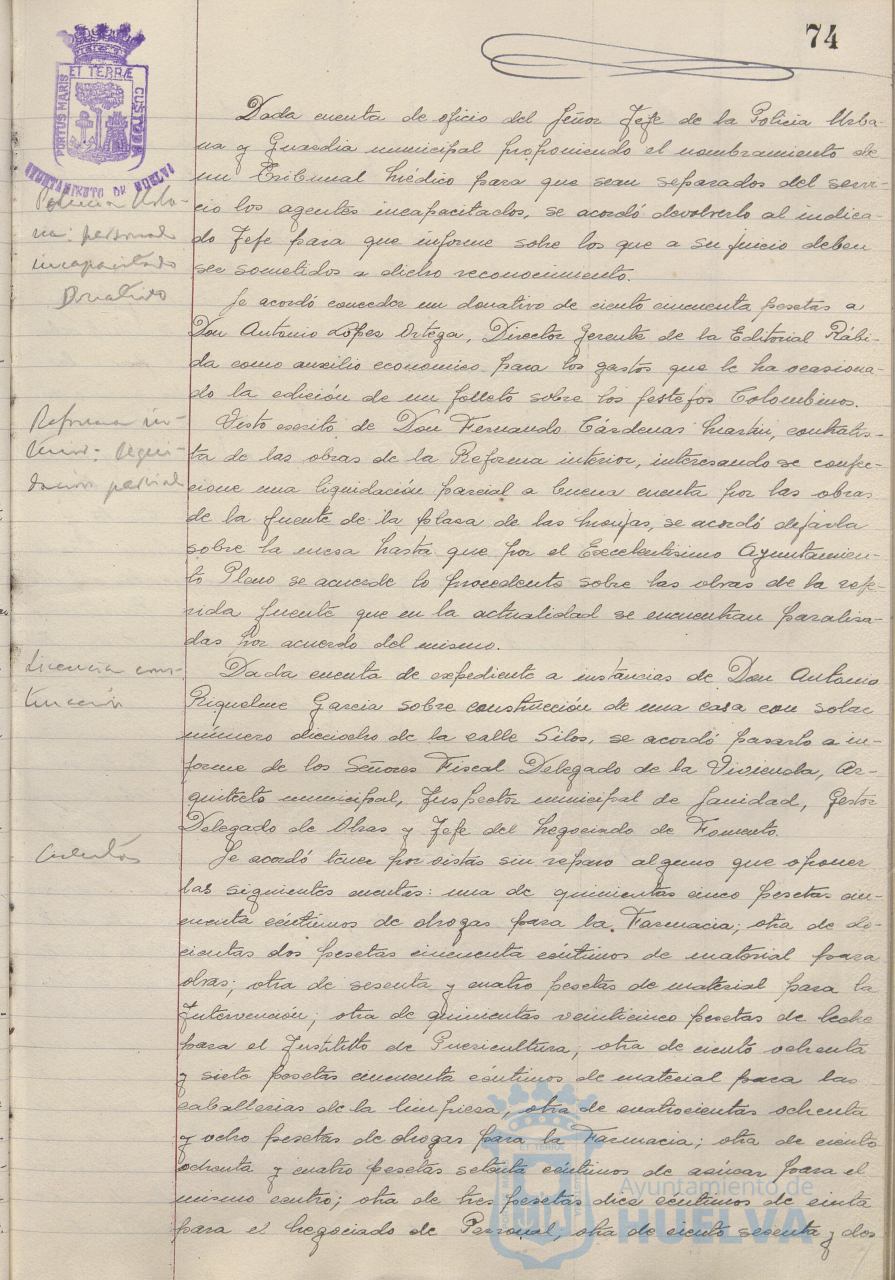 74
PORTUS MARIS ET TERRÆ CUSTODIA
AYUNTAMIENTO DE HUELVA
Dada cuenta de oficio del Señor Jefe de la Policia Urba-
na y Guardia municipal proponiendo el nombramiento de
un Tribunal Médico para que sean separados del servi-
Policia Urba-
cio los agentes incapacitados, se acordó devolverlo al indica-
na: personal
do Jefe para que informe sobre los que a su juicio deben
incapacitado
ser sometidos a dicho reconocimiento.
Donativo
Se acordó conceder un donativo de ciento cincuenta pesetas a
Don Antonio López Ortega, Director Gerente de la Editorial Rábi-
da como auxilio economico para los gastos que le ha ocasiona-
do la edición de un folleto sobre los festejos Colombinos.
Reforma in-
Visto escrito de Don Fernando Cárdenas Martin, contratis-
terior: liqui-
ta de las obras de la Reforma interior, interesando se confec-
dación parcial
cione una liquidación parcial a buena cuenta por las obras
de la fuente de la plaza de las monjas, se acordó dejarla
sobre la mesa hasta que por el Excelentisimo Ayuntamien-
to Pleno se acuerde lo procedente sobre las obras de la refe-
rida fuente que en la actualidad se encuentran paraliza-
das por acuerdo del mismo.
Licencia cons-
Dada cuenta de expediente a instancias de Don Antonio
trucción
Riquelme Garcia sobre construcción de una casa con solar
número dieciocho de la calle Silos, se acordó pasarlo a in-
forme de los Señores Fiscal Delegado de la Vivienda, Ar-
quitecto municipal, Inspector municipal de Sanidad, Gestor
Delegado de Obras y Jefe del Negociado de Fomento.
Cuentas
Se acordó tener por vistas sin reparo alguno que oponer
las siguientes cuentas: una de quinientas cinco pesetas cin-
cuenta céntimos de drogas para la Farmacia; otra de do-
cientas dos pesetas cincuenta céntimos de material para
obras; otra de sesenta y cuatro pesetas de material para la
Intervención; otra de quinientas veinticinco pesetas de leche
para el Instituto de Puericultura; otra de ciento ochenta
y siete pesetas cincuenta céntimos de material para las
caballerias de la limpieza, otra de cuatrocientas ochenta
y ocho pesetas de drogas para la Farmacia; otra de ciento
ochenta y cuatro pesetas setenta céntimos de azúcar para el
mismo centro; otra de tres pesetas diez céntimos de cinta
para el Negociado de Personal, otra de ciento sesenta y dos
Ayuntamiento de
HUELVA